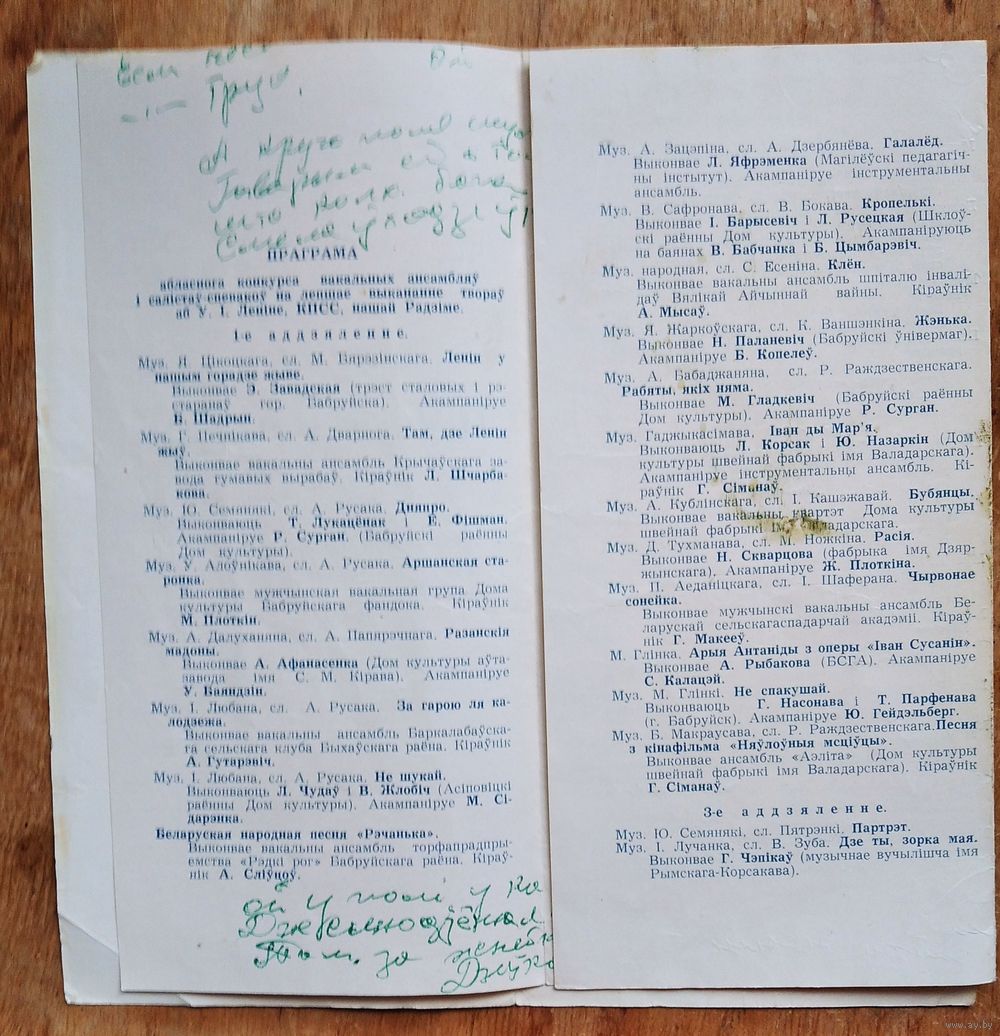 Грус,
ПРАГРАМА
абласнога конкурса вакальных ансамбляў
і салістаў-спевакоў на лепшае выкананне твораў
аб У. І. Леніне, КПСС, нашай Радзіме.
1-е аддзяленне.
Муз. Я. Цікоцкага, сл. М. Барэзінскага. Ленін у
нашым горадзе жыве.
Выконвае Э. Завадская (трэст сталовых і рэ-
старанаў гор. Бабруйска). Акампаніруе
Б. Шадрын.
Муз. Г. Печнікава, сл. А. Дварнога. Там, дзе Ленін
жыў.
Выконвае вакальны ансамбль Крычаўскага за-
вода гумавых вырабаў. Кіраўнік Л. Шчарба-
кова.
Муз. Ю. Семянякі, сл. А. Русака. Дняпро.
Выконваюць Т. Лукацёнак і Е. Фішман.
Акампаніруе Р. Сурган. (Бабруйскі раённы
Дом культуры).
Муз. У. Алоўнікава, сл. А. Русака. Аршанская ста-
ронка.
Выконвае мужчынская вакальная група Дома
культуры Бабруйскага фандока. Кіраўнік
М. Плоткін.
Муз. А. Далуханяна, сл. А. Папярэчнага. Разанскія
мадоны.
Выконвае А. Афанасенка (Дом культуры аўта-
завода імя С. М. Кірава). Акампаніруе
У. Баяндзін.
Муз. І. Любана, сл. А. Русака. За гарою ля ка-
лодзежа.
Выконвае вакальны ансамбль Баркалабаўска-
га сельскага клуба Быхаўскага раёна. Кіраўнік
А. Гутарэвіч.
Муз. І. Любана, сл. А. Русака. Не шукай.
Выконваюць Л. Чудаў і В. Жлобіч (Асіповіцкі
раённы Дом культуры). Акампаніруе М. Сі-
дарэнка.
Беларуская народная песня «Рэчанька».
Выконвае вакальны ансамбль торфапрадпры-
емства «Рэдкі рог» Бабруйскага раёна. Кіраў-
нік А. Сліўцоў.
ой у полі у
Там, за
Муз. А. Зацэпіна, сл. А. Дзербянёва. Галалёд.
Выконвае Л. Яфрэменка (Магілёўскі педагагіч-
ны інстытут). Акампаніруе інструментальны
ансамбль.
Муз. В. Сафронава, сл. В. Бокава. Кропелькі.
Выконвае І. Барысевіч і Л. Русецкая (Шклоў-
скі раённы Дом культуры). Акампаніруюць
на баянах В. Бабчанка і Б. Цымбарэвіч.
Муз. народная, сл. С. Есеніна. Клён.
Выконвае вакальны ансамбль шпіталю інвалі-
даў Вялікай Айчыннай вайны. Кіраўнік
А. Мысаў.
Муз. Я. Жаркоўскага, сл. К. Ваншэнкіна. Жэнька.
Выконвае Н. Паланевіч (Бабруйскі ўнівермаг).
Акампаніруе Б. Копелеў.
Муз. А. Бабаджаняна, сл. Р. Раждзественскага.
Рабяты, якіх няма.
Выконвае М. Гладкевіч (Бабруйскі раённы
Дом культуры). Акампаніруе Р. Сурган.
Муз. Гаджыкасімава, Іван ды Мар'я.
Выконваюць Л. Корсак і Ю. Назаркін (Дом
культуры швейнай фабрыкі імя Валадарскага).
Акампаніруе інструментальны ансамбль. Кі-
раўнік Г. Сіманаў.
Муз. А. Кублінскага, сл. І. Кашэжавай. Бубянцы.
Выконвае вакальны квартэт Дома культуры
швейнай фабрыкі імя Валадарскага.
Муз. Д. Тухманава, сл. М. Ножкіна. Расія.
Выконвае Н. Скварцова (фабрыка імя Дзяр-
жынскага). Акампаніруе Ж. Плоткіна.
Муз. П. Аеданіцкага, сл. І. Шаферана. Чырвонае
сонейка.
Выконвае мужчынскі вакальны ансамбль Бе-
ларускай сельскагаспадарчай акадэміі. Кіраў-
нік Г. Макееў.
М. Глінка. Арыя Антаніды з оперы «Іван Сусанін».
Выконвае А. Рыбакова (БСГА). Акампаніруе
С. Калацэй.
Муз. М. Глінкі. Не спакушай.
Выконваюць Г. Насонава і Т. Парфенава
(г. Бабруйск). Акампаніруе Ю. Гейдэльберг.
Муз. Б. Макраусава, сл. Р. Раждзественскага. Песня
з кінафільма «Няўлоўныя мсціўцы».
Выконвае ансамбль «Аэліта» (Дом культуры
швейнай фабрыкі імя Валадарскага). Кіраўнік
Г. Сіманаў.
3-е аддзяленне.
Муз. Ю. Семянякі, сл. Пятрэнкі. Партрэт.
Муз. І. Лучанка, сл. В. Зуба. Дзе ты, зорка мая.
Выконвае Г. Чэпікаў (музычнае вучылішча імя
Рымскага-Корсакава).
www.ay.by